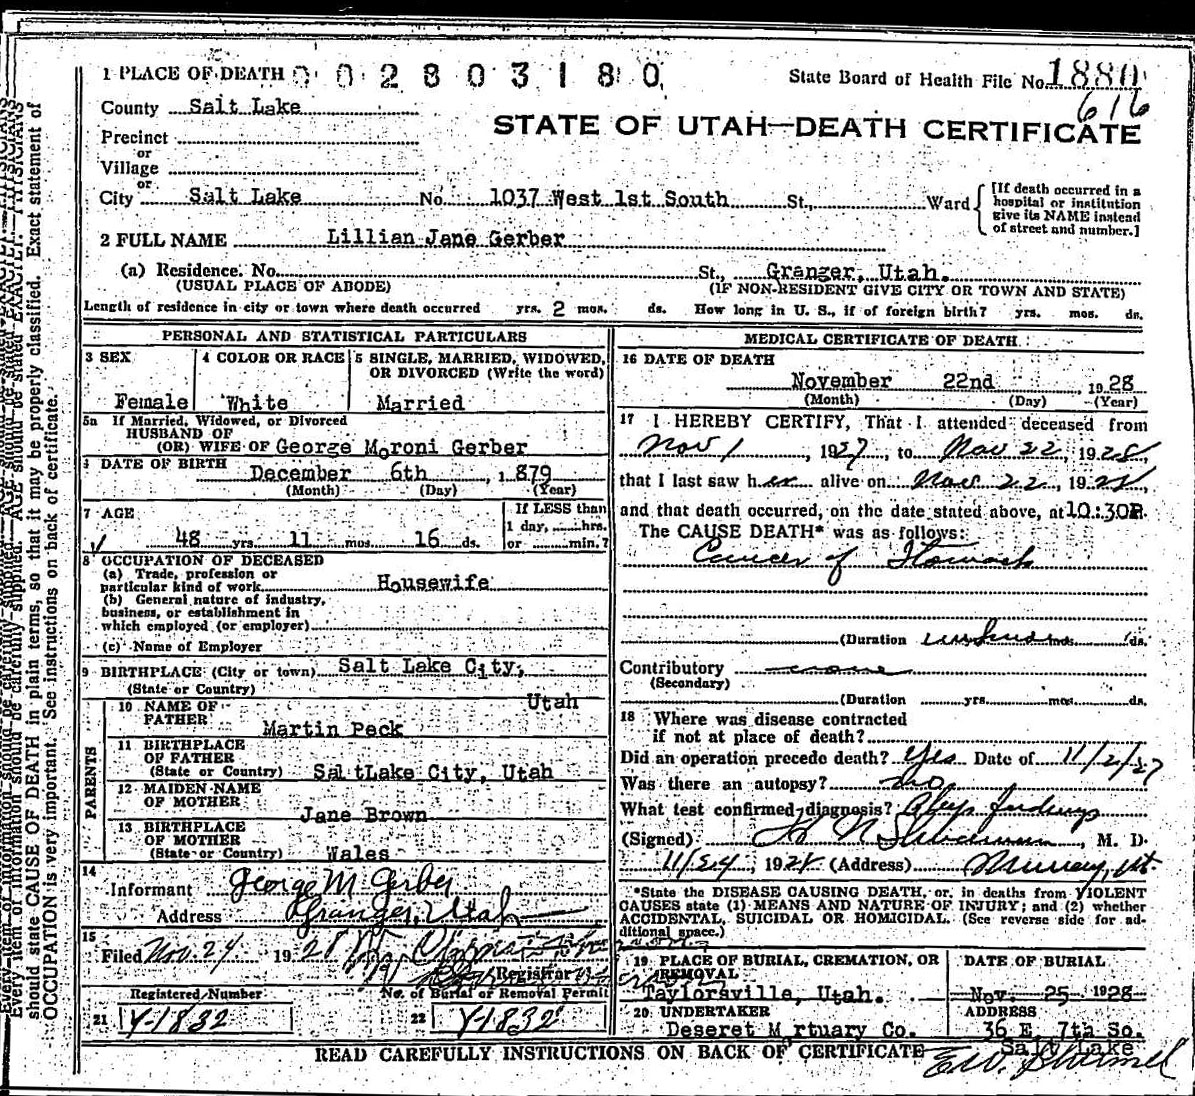 1 PLACE OF DEATH 0 0 2 8 0 3 1 8 0
State Board of Health File No. 1880
616
County Salt Lake
STATE OF UTAH—DEATH CERTIFICATE
Precinct
or
Village
or
City Salt Lake No. 1037 West 1st South St., Ward
[If death occurred in a
hospital or institution
give its NAME instead
of street and number.]
2 FULL NAME Lillian Jane Gerber
(a) Residence. No. St., Granger, Utah.
(USUAL PLACE OF ABODE) (IF NON-RESIDENT GIVE CITY OR TOWN AND STATE)
Length of residence in city or town where death occurred yrs. 2 mos. ds. How long in U. S., if of foreign birth? yrs. mos. ds.
PERSONAL AND STATISTICAL PARTICULARS
3 SEX 4 COLOR OR RACE 5 SINGLE, MARRIED, WIDOWED,
OR DIVORCED (Write the word)
Female White Married
5a If Married, Widowed, or Divorced
HUSBAND OF
(OR) WIFE OF George Moroni Gerber
6 DATE OF BIRTH December 6th, 1879
(Month) (Day) (Year)
7 AGE If LESS than
1 day, hrs.
48 yrs. 11 mos. 16 ds. or min.?
8 OCCUPATION OF DECEASED
(a) Trade, profession or
particular kind of work Housewife
(b) General nature of industry,
business, or establishment in
which employed (or employer)
(c) Name of Employer
9 BIRTHPLACE (City or town) Salt Lake City,
(State or Country) Utah
PARENTS
10 NAME OF
FATHER Martin Peck
11 BIRTHPLACE
OF FATHER
(State or Country) SaltLake City, Utah
12 MAIDEN NAME
OF MOTHER Jane Brown
13 BIRTHPLACE
OF MOTHER
(State or Country) Wales
14
Informant George M Gerber
Address Granger, Utah
15
Filed Nov. 24 1928
Registrar
Registered Number No. of Burial or Removal Permit
21 Y-1832 22 Y-1832
MEDICAL CERTIFICATE OF DEATH
16 DATE OF DEATH
November 22nd 1928
(Month) (Day) (Year)
17 I HEREBY CERTIFY, That I attended deceased from
Nov 1, 1927, to Nov 22, 1928,
that I last saw her alive on Nov 22, 1928,
and that death occurred, on the date stated above, at 10:30P.
The CAUSE DEATH* was as follows:
Cancer of Stomach
(Duration unknown ds.
Contributory none
(Secondary)
(Duration yrs. mos. ds.
18 Where was disease contracted
if not at place of death?
Did an operation precede death? Yes Date of 11/2/27
Was there an autopsy? no
What test confirmed diagnosis?
(Signed) , M. D.
1928 (Address) Murray, Ut.
*State the DISEASE CAUSING DEATH, or, in deaths from VIOLENT
CAUSES state (1) MEANS AND NATURE OF INJURY; and (2) whether
ACCIDENTAL, SUICIDAL OR HOMICIDAL. (See reverse side for ad-
ditional space.)
19 PLACE OF BURIAL, CREMATION, OR
REMOVAL
Taylorsville, Utah.
DATE OF BURIAL
Nov. 25 1928
20 UNDERTAKER
Deseret Mortuary Co.
ADDRESS
36 E. 7th So.
Salt Lake
READ CAREFULLY INSTRUCTIONS ON BACK OF CERTIFICATE
should state CAUSE OF DEATH in plain terms, so that it may be properly classified. Exact statement of
OCCUPATION is very important. See instructions on back of certificate.